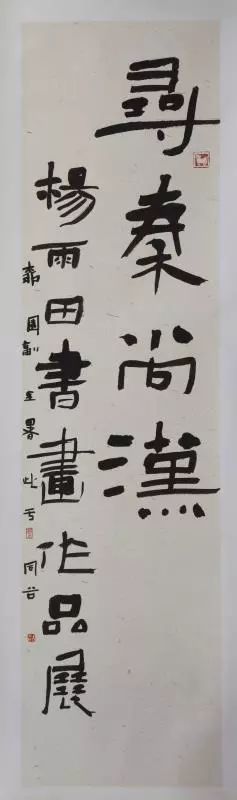 尋秦尚漢
楊雨田書畫作品展